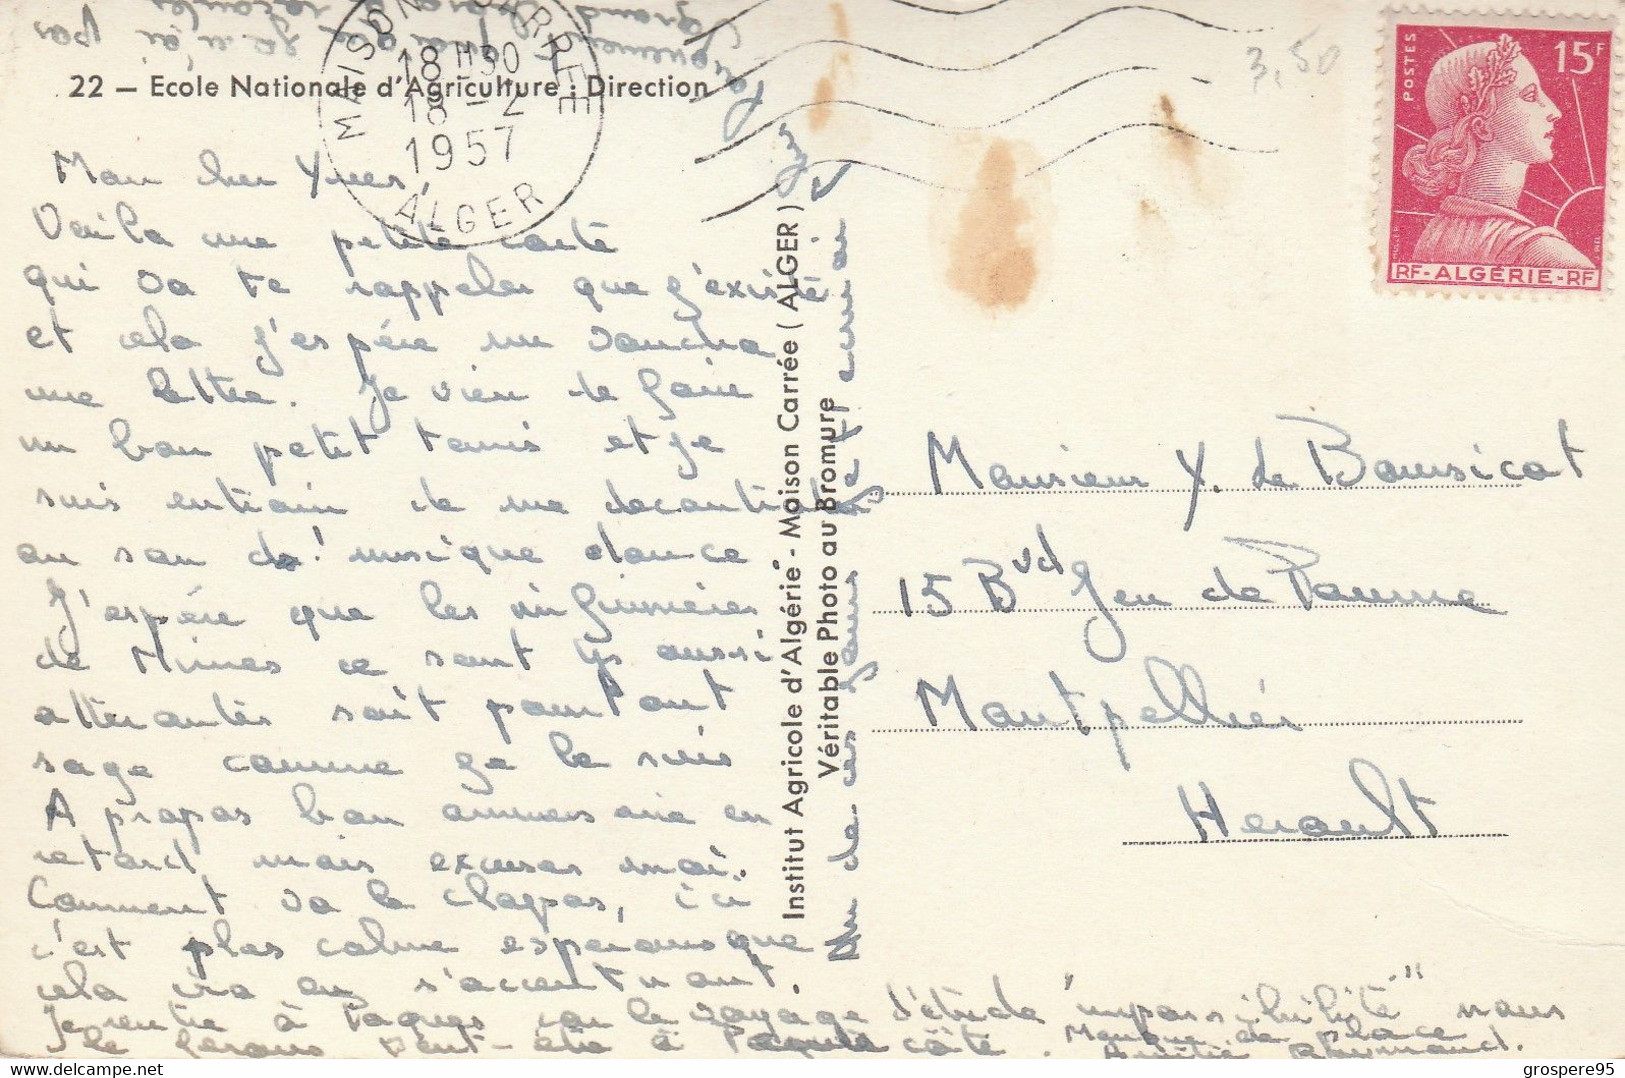 22 — Ecole Nationale d'Agriculture : Direction
MAISON CARREE
18 H30
18 - 2
1957
ALGER
3,50
POSTES
15F
RF - ALGÉRIE - RF
Mon cher Yves,
Voila une petite carte
qui va te rappeler que j'existe
et cela j'espère me vaudra
une lettre. Je vien de faire
un bon petit tennis et je
suis entrain de me decontracter
au son de musique douce
J'espère que les infirmieres
de Nimes ce sont aussi
soit pourtant
sage comme je le suis
A propos bon anniversaire en
retard mais excuses moi.
Comment va le clapas, ici
c'est plus calme esperons que
cela ira en s'accentuant.
Je rentre à Paques car le voyage d'étude "impossibilité" nous
le ferons peut-etre à Paques côté. Manque de place
Amitié Raymond.
Un de ces jours je t'ecrirai
Institut Agricole d'Algérie - Maison Carrée ( ALGER )
Véritable Photo au Bromure
Monsieur Y. de Boussicat
15 Bvd Jeu de Paume
Montpellier
Herault
grospere95